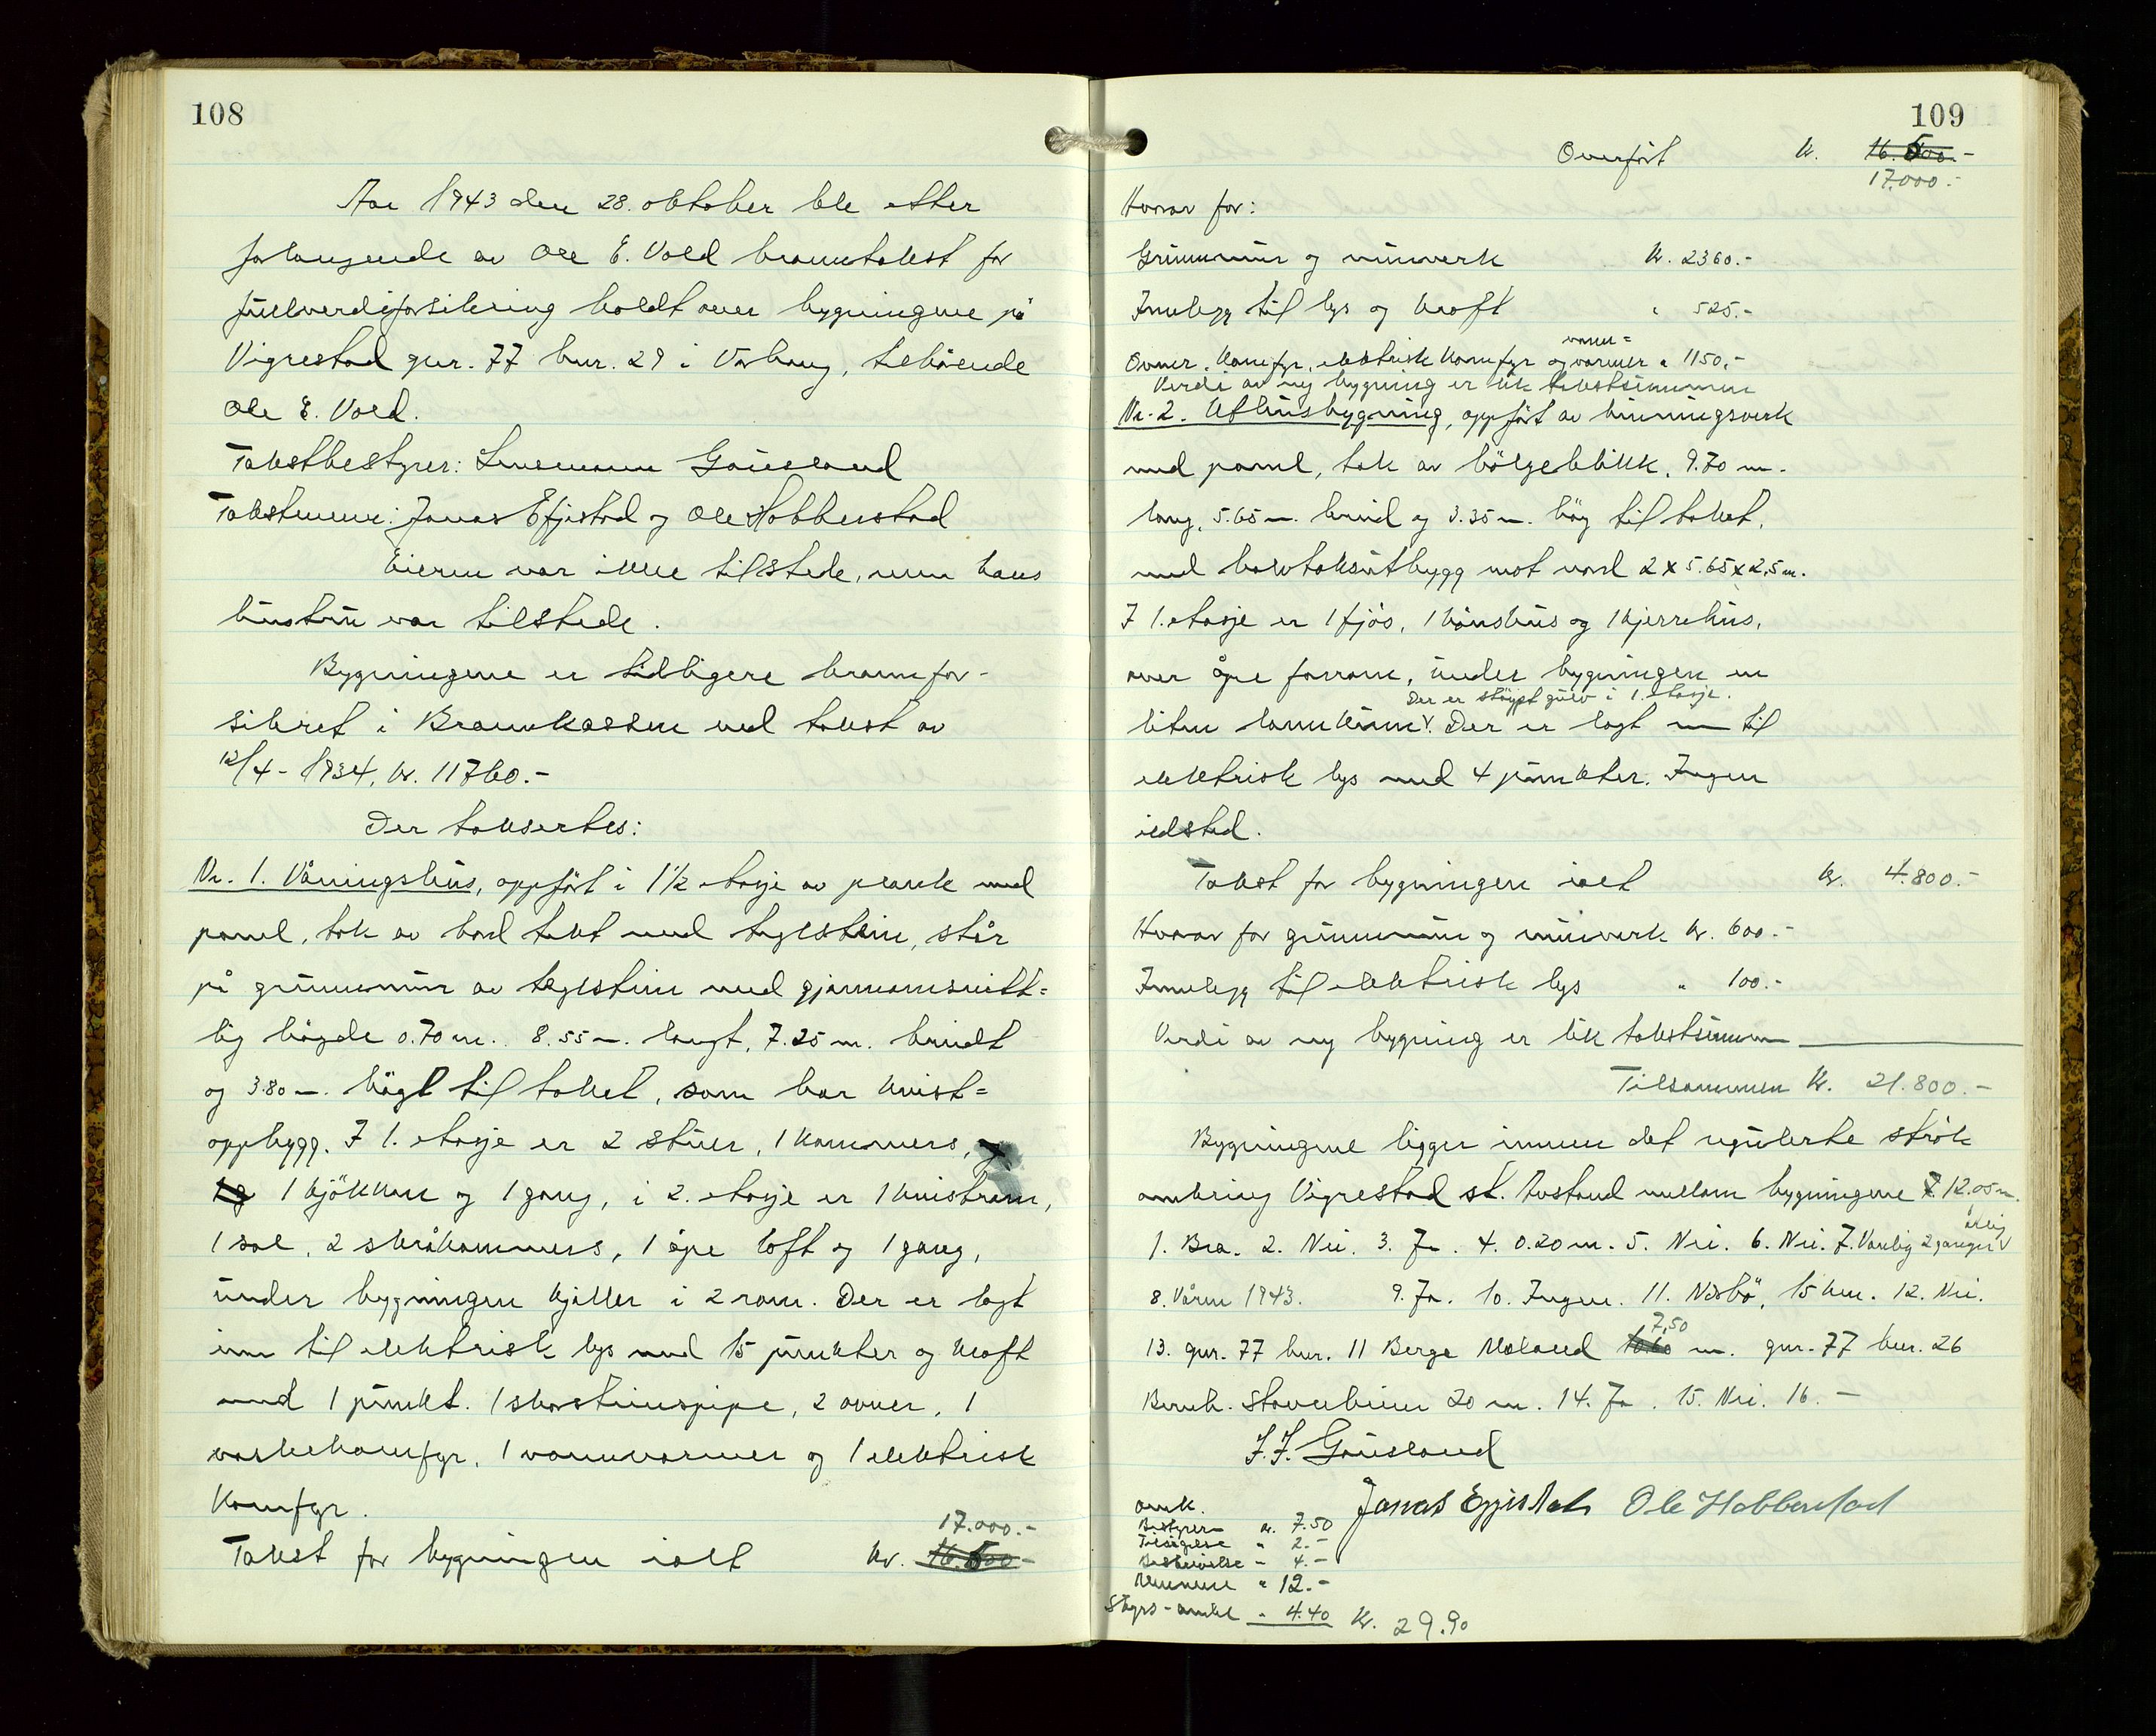 108
Aar 1943 den 28. oktober ble etter
forlangende av Ole E. Vold branntakst for
fullverdiforsikring holdt over bygningene på
Vigrestad gnr. 77 bnr. 29 i Varhaug, tilhörende
Ole E. Vold.
Takstbestyrer: Lensmann Gausland
Takstmenn: Jonas Efjestad og Ole Hobberstad
Eieren var ikke tilstede, men hans
hustru var tilstede.
Bygningene er tidligere brannfor-
sikret i Brannkassen ved takst av
12/4 - 1934, kr. 11760.-
Der taksertes:
Nr. 1. Våningshus, oppfört i 1½ etasje av plank med
panel, tak av bord tekt med teglsten, står
på grunnmur av teglstein med gjennomsnitt=
lig högde 0.70 m. 8.55 m. langt, 7.25 m. breidt
og 3.80 m. högt til taket, som har kvist=
oppbygg. I 1. etasje er 2 stuer, 1 kammers,
1 kjökken og 1 gang, i 2. etasje er 1 kvistrom,
1 sal, 2 skråkammers, 1 åpe loft og 1 gang,
under bygningen kjeller i 2 rom. Der er lagt
inn til elektrisk lys med 15 punkter og kraft
med 1 punkt. 1 skorsteinspipe, 2 ovner, 1
vaskekomfyr, 1 vannvarmer og 1 elektrisk
komfyr.
17.000.-
Takst for bygningen ialt kr. 16.500.-
109
Overfört kr. 16.500.-
17.000.-
Hvorav for:
Grunnmur og murverk kr. 2360.-
Innlegg til lys og kraft " 525.-
vann=
Ovner, komfyr, elektrisk komfyr og varmer " 1150.-
Verdi av ny bygning er lik takstsummen
Nr. 2. Uthusbygning, oppfört av binningsverk
med panel, tak av bölgeblikk, 9.70 m.
lang, 5.65 m. breid og 3.35 m. höy til taket,
med halvtaksutbygg mot nord 2 x 5.65 x 2,5 m.
I 1. etasje er 1 fjös, 1 hönshus og 1 kjerrehus,
over åpe forrom, under bygningen en
Der er stöypt gulv i 1. etasje.
liten landkum V. Der er lagt inn til
elektrisk lys med 4 punkter. Ingen
ildsted.
Takst for bygningen ialt kr. 4.800.-
Hvorav for grunnmur og murverk kr. 600.-
Innlegg til elektrisk lys " 100.-
Verdi av ny bygning er lik takstsummen
Tilsammen kr. 21.800.-
Bygningene ligger innen det regulerte strök
omkring Vigrestad st. Avstand mellom bygningene 12.05 m.
årlig
1. Bra. 2. Nei. 3. Ja. 4. 0.20 m. 5. Nei. 6. Nei. 7. Vanlig 2 ganger V
8. Våren 1943. 9. Ja. 10. Ingen. 11. Nærbö, 15 km. 12. Nei.
7,50
13. gnr. 77 bnr. 11 Berge Mæland 10.60 m. gnr. 77 bnr. 26
Bernh. Stavnheim 20 m. 14. Ja. 15. Nei. 16. -
J. J. Gausland
Jonas Efjestad Ole Hobberstad
Omk.
Bestyreren kr. 7.50
Tilsigelse " 2.-
Beskrivelse " 4.-
Mennene " 12.-
Skyss-andel " 4.40 kr. 29.90